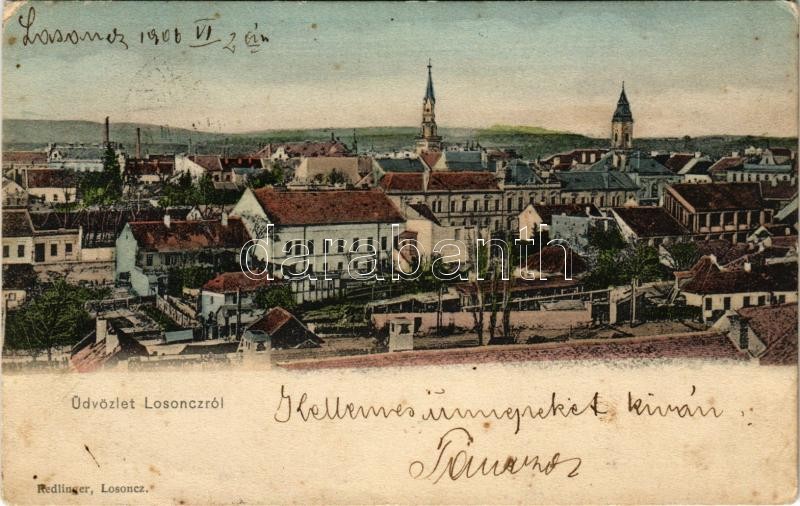 Losoncz 1906 VI 2 án
darabanth
Üdvözlet Losonczról
Kellemes ünnepeket kiván
Redlinger, Losoncz.